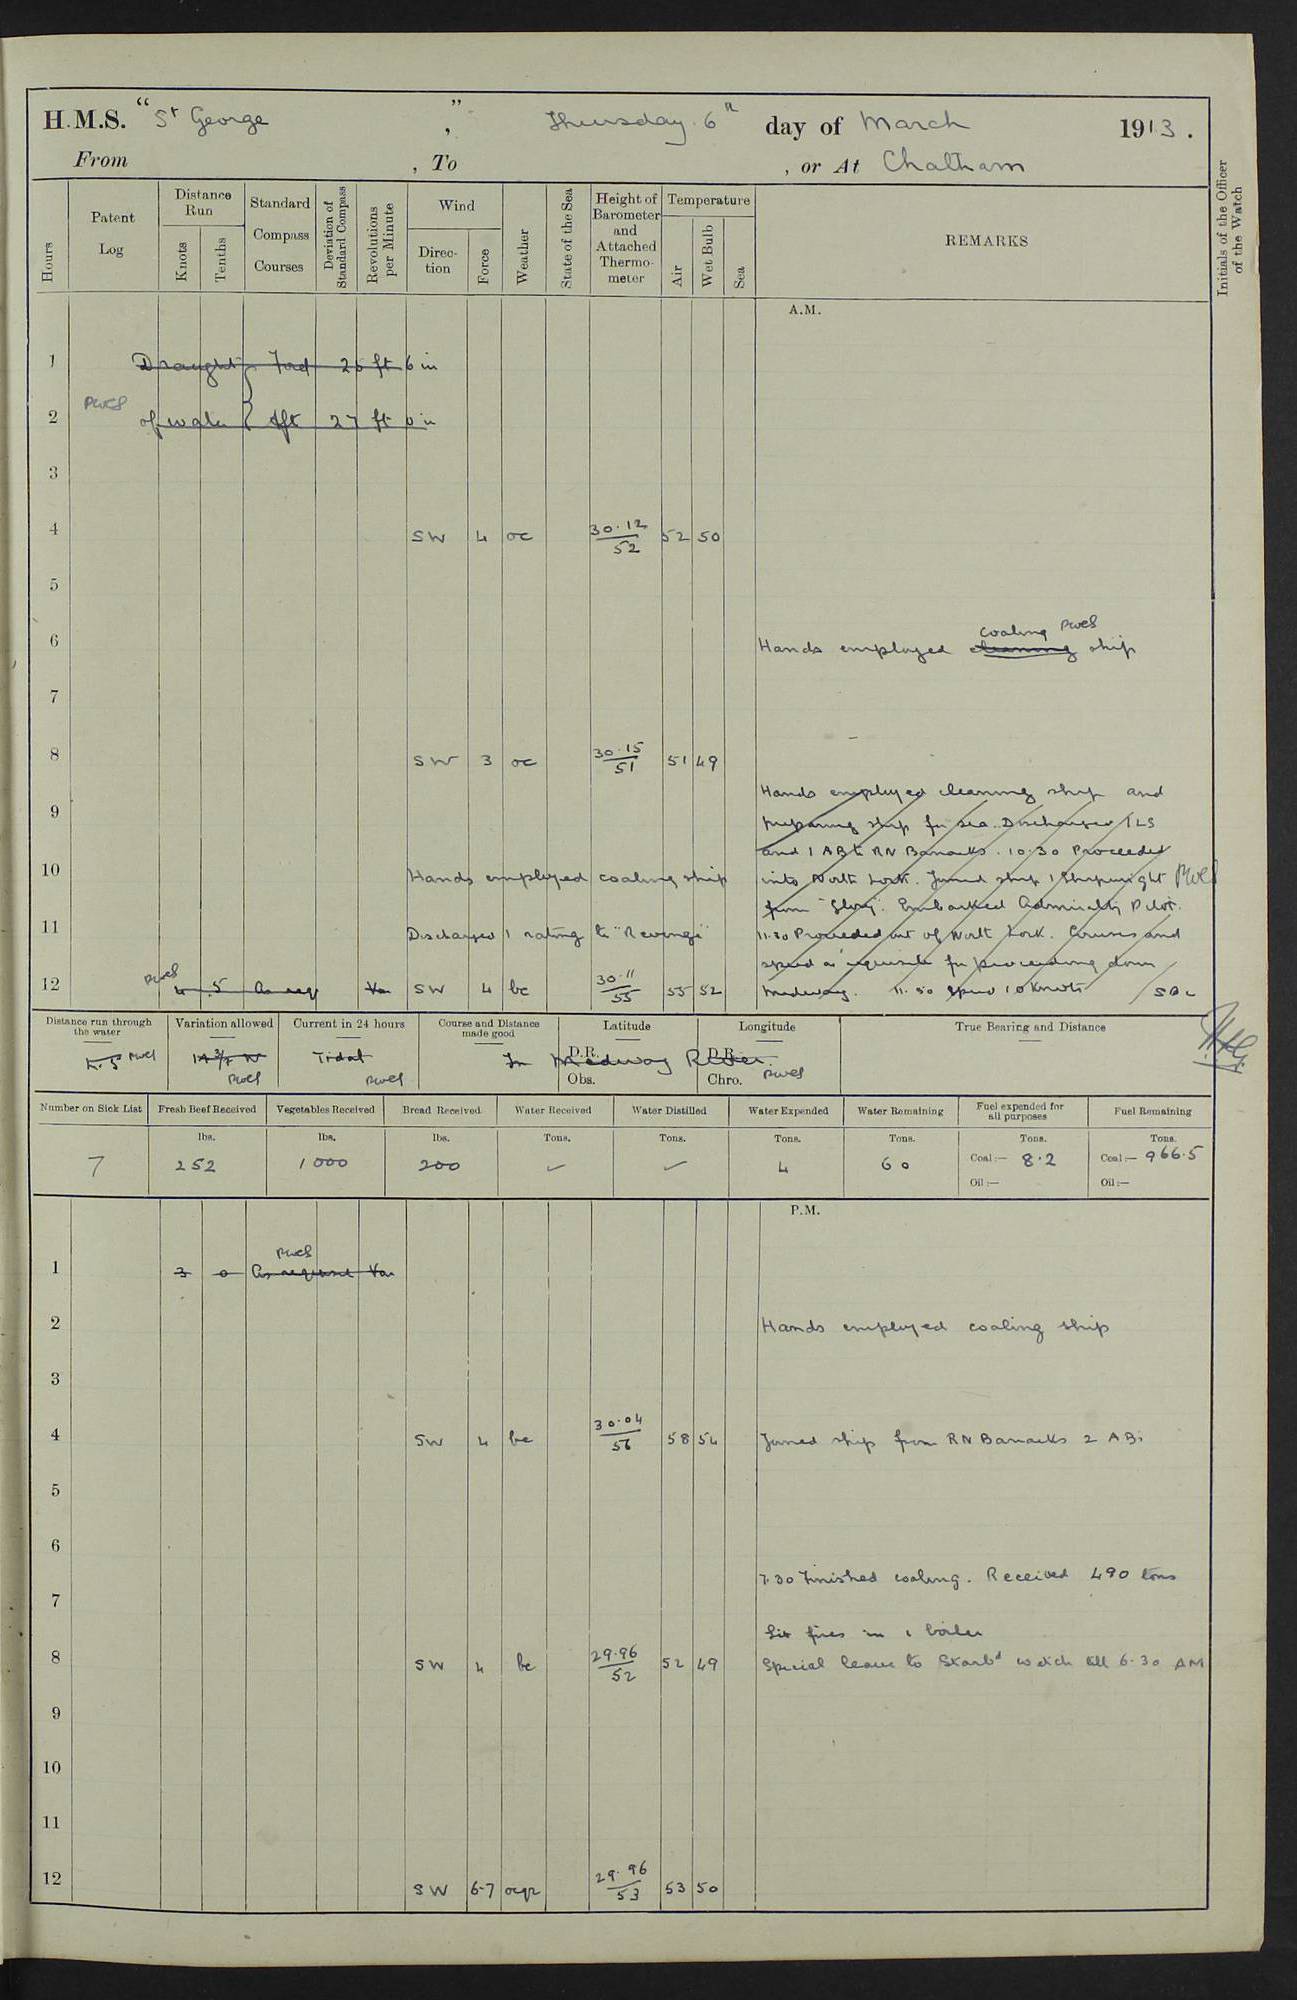 H.M.S. "St George", Thursday 6th day of March 1913.
From , To , or At Chatham
Hours
Patent Log
Distance Run
Knots
Tenths
Standard Compass Courses
Deviation of Standard Compass
Revolutions per Minute
Wind
Direction
Force
Weather
State of the Sea
Height of Barometer and Attached Thermometer
Temperature
Air
Wet Bulb
Sea
REMARKS
Initials of the Officer of the Watch
A.M.
1 Draught Ford 26 ft 6 in
2 PWCS of water Aft 27 ft 0 in
3
4 SW 4 oc 30.12 52 52 50
5
6 Hands employed cleaning coaling PWCS ship
7
8 SW 3 oc 30.15 51 51 49
Hands employed cleaning ship and
9 preparing ship for sea. Discharged 1 LS
and 1 AB to RN Barracks. 10.30 Proceeded
10 Hands employed coaling ship into North Lock. Joined ship 1 Shipwright PWCS
from "Glory". Embarked Admiralty Pilot.
11 Discharged 1 rating to "Revenge" 11.30 Proceeded out of North Lock. Courses and
speed as requisite for proceeding down
12 PWCS 4 .5 As req Var SW 4 bc 30.11 55 55 52 Medway. 11.50 Speed 10 knots
Distance run through the water
PWCS
Variation allowed
PWCS
Current in 24 hours
Tidal PWCS
Course and Distance made good
Latitude
D.R.
Obs.
Longitude
D.R.
Chro.
In Medway River. PWCS
True Bearing and Distance
Number on Sick List 7
Fresh Beef Received lbs. 252
Vegetables Received lbs. 1000
Bread Received lbs. 200
Water Received Tons. ✓
Water Distilled Tons. ✓
Water Expended Tons. 4
Water Remaining Tons. 60
Fuel expended for all purposes Tons. Coal:— 8.2 Oil:—
Fuel Remaining Tons. Coal:— 966.5 Oil:—
P.M.
PWCS
1 3 0 As requisite Var
2 Hands employed coaling ship
3
4 SW 4 bc 30.04 56 58 54 Joined ship from RN Barracks 2 ABs
5
6
7.30 Finished coaling. Received 490 tons
7
Lit fires in 1 boiler
8 SW 4 bc 29.96 52 52 49 Special leave to Starbd watch till 6.30 AM
9
10
11
12 SW 6-7 ocqr 29.96 53 53 50